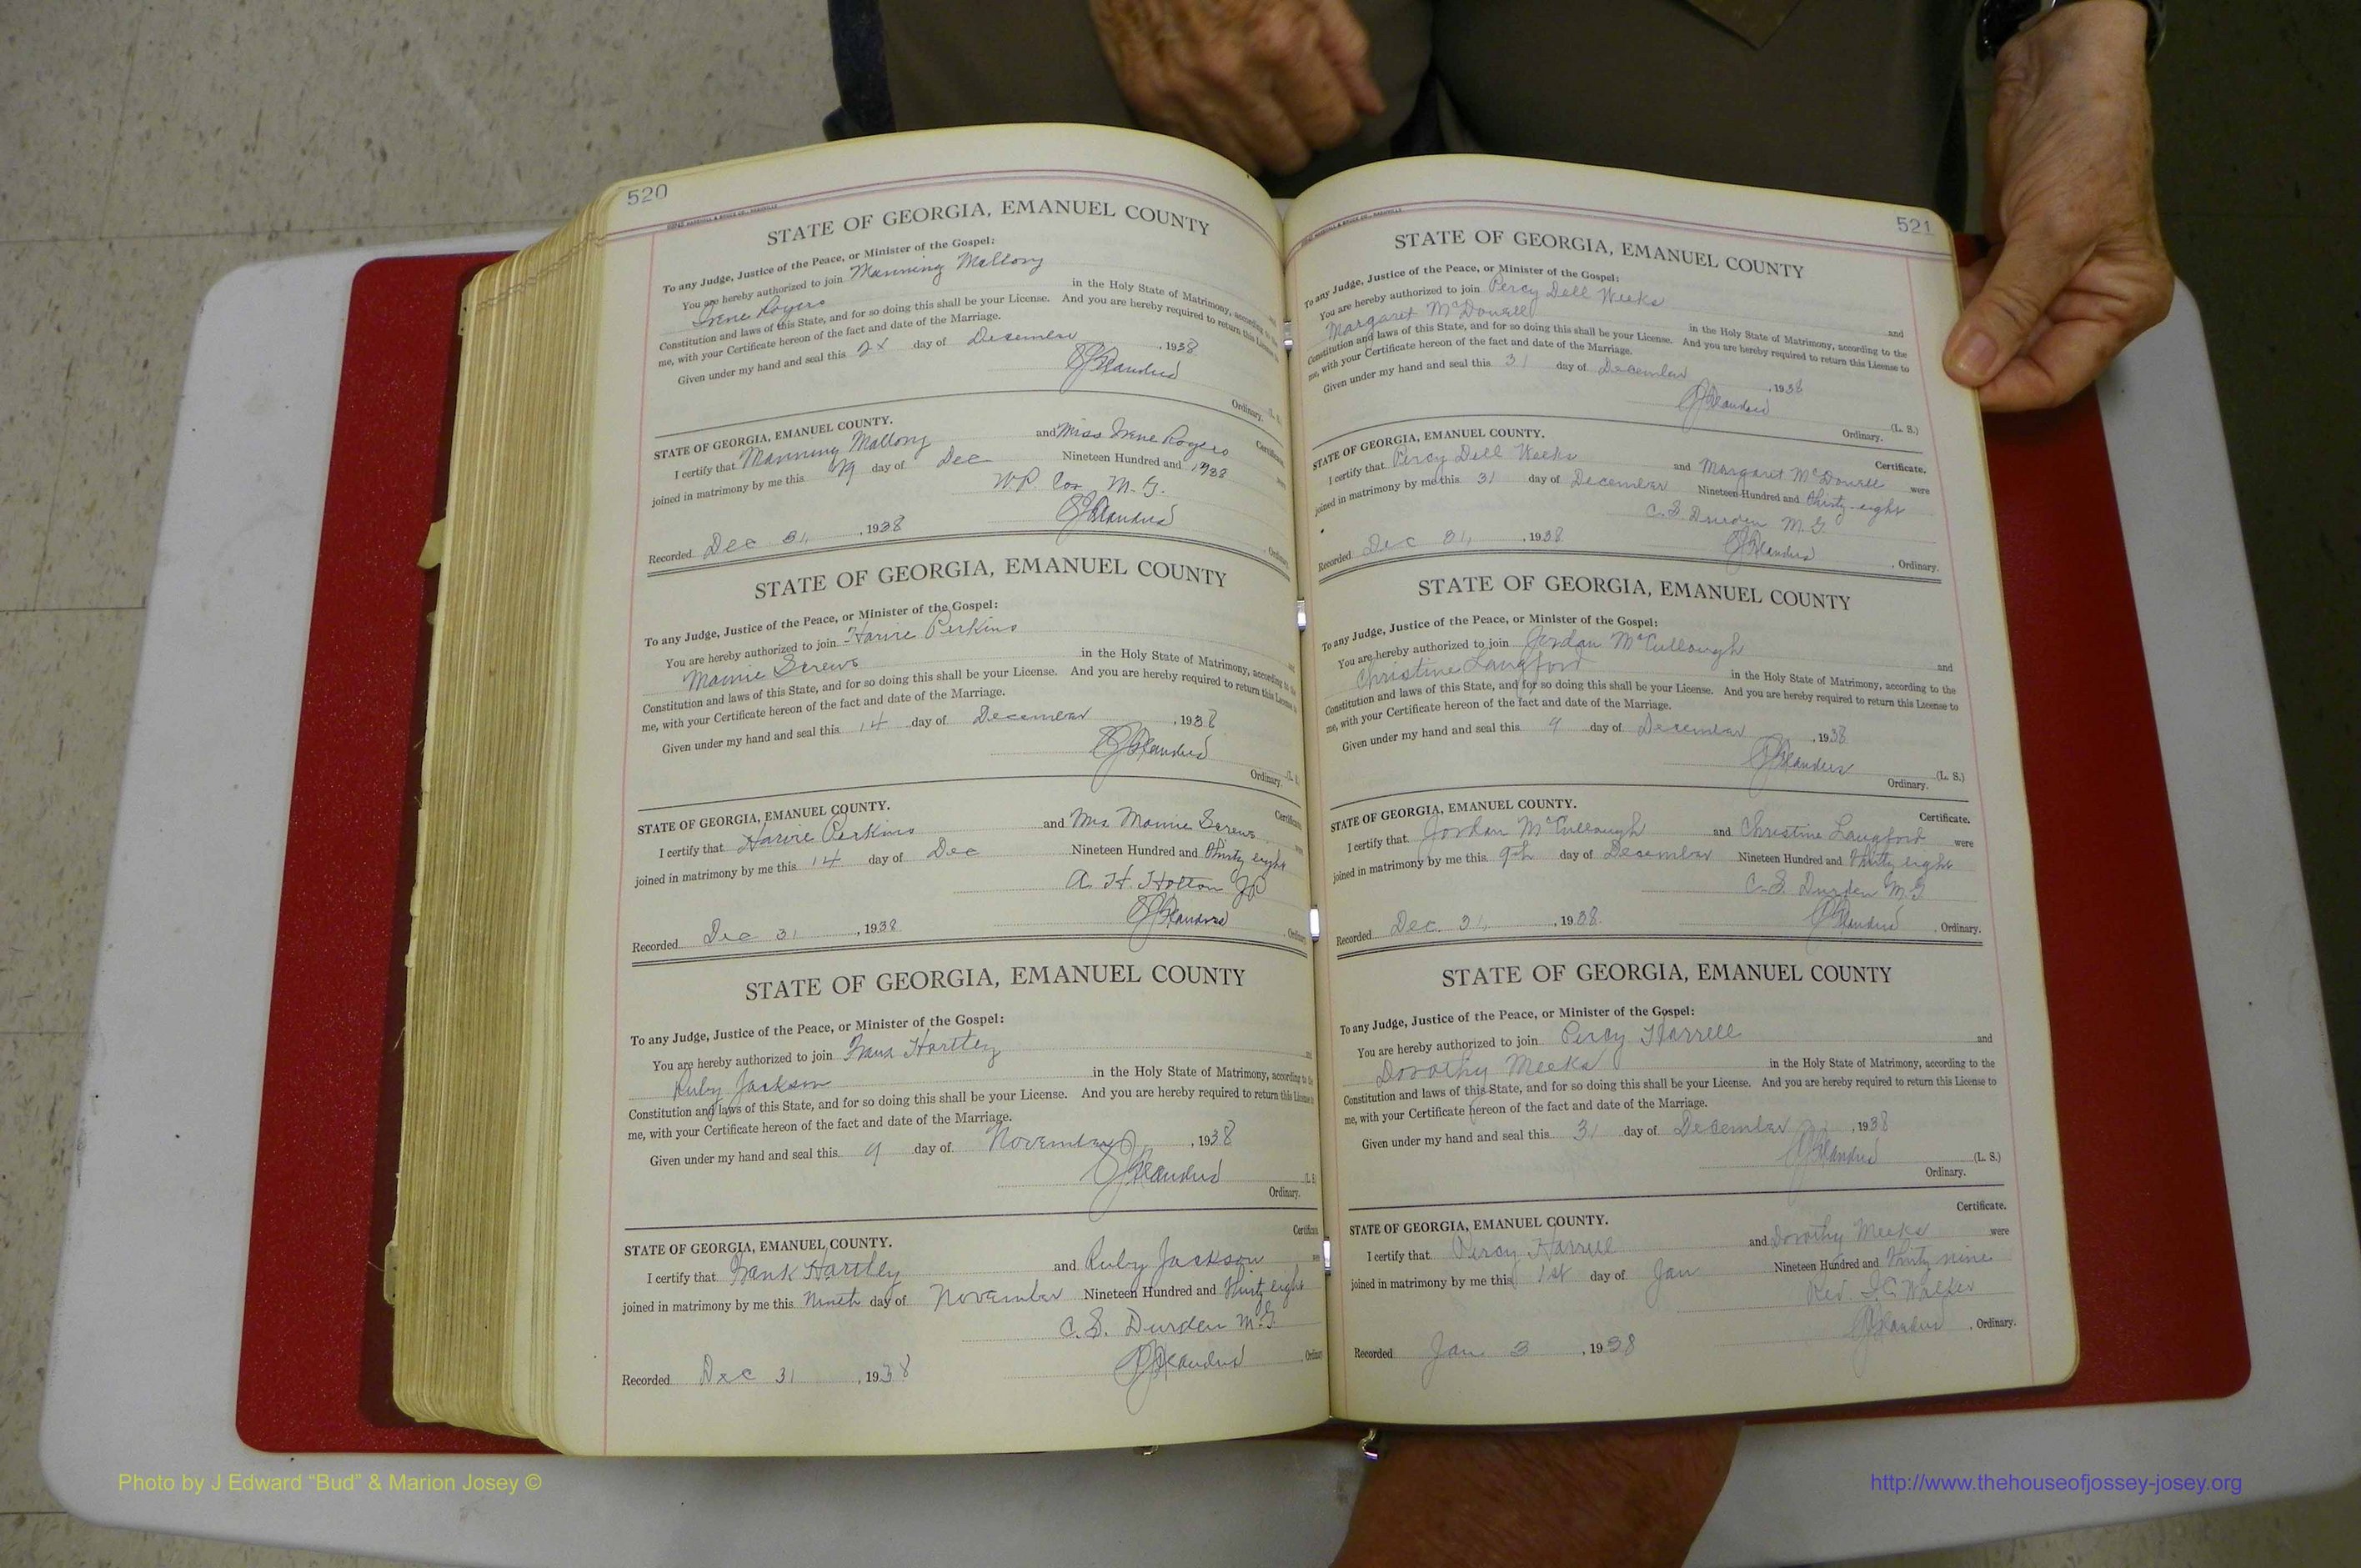 520
STATE OF GEORGIA, EMANUEL COUNTY
To any Judge, Justice of the Peace, or Minister of the Gospel:
You are hereby authorized to join Manning Mallory
Irene Rogers in the Holy State of Matrimony, according to the
Constitution and laws of this State, and for so doing this shall be your License. And you are hereby required to return this License
me, with your Certificate hereon of the fact and date of the Marriage.
Given under my hand and seal this day of December, 1938
Ordinary. (L. S.
STATE OF GEORGIA, EMANUEL COUNTY. Certificate.
I certify that Manning Mallory and Miss Irene Rogers
joined in matrimony by me this day of Dec Nineteen Hundred and 1938
W.P. Cox M.G.
Recorded Dec 31, 1938 Ordinary
STATE OF GEORGIA, EMANUEL COUNTY
To any Judge, Justice of the Peace, or Minister of the Gospel:
You are hereby authorized to join Harvie Perkins
Mamie Screws in the Holy State of Matrimony, according to the
Constitution and laws of this State, and for so doing this shall be your License. And you are hereby required to return this License
me, with your Certificate hereon of the fact and date of the Marriage.
Given under my hand and seal this 14 day of December, 1938
Ordinary. (L. S.
STATE OF GEORGIA, EMANUEL COUNTY. Certificate.
I certify that Harvie Perkins and Mrs Mamie Screws
joined in matrimony by me this 14 day of Dec Nineteen Hundred and thirty eight
A. H. Holton JP
Recorded Dec 31, 1938 Ordinary
STATE OF GEORGIA, EMANUEL COUNTY
To any Judge, Justice of the Peace, or Minister of the Gospel:
You are hereby authorized to join Hartley
Ruby Jackson in the Holy State of Matrimony, according to
Constitution and laws of this State, and for so doing this shall be your License. And you are hereby required to return this License
me, with your Certificate hereon of the fact and date of the Marriage.
Given under my hand and seal this 9 day of November, 1938
(L. S
Ordinary.
Certificate
STATE OF GEORGIA, EMANUEL COUNTY.
I certify that Frank Hartley and Ruby Jackson
joined in matrimony by me this Nineth day of November Nineteen Hundred and Thirty eight
C. S. Durden M.G.
Recorded Dec 31, 1938
521
STATE OF GEORGIA, EMANUEL COUNTY
To any Judge, Justice of the Peace, or Minister of the Gospel:
You are hereby authorized to join Percy Dell Weeks and
Margaret McDowell in the Holy State of Matrimony, according to the
Constitution and laws of this State, and for so doing this shall be your License. And you are hereby required to return this License to
me, with your Certificate hereon of the fact and date of the Marriage.
Given under my hand and seal this 31 day of December, 1938
(L. S.)
Ordinary.
STATE OF GEORGIA, EMANUEL COUNTY. Certificate.
I certify that Percy Dell Weeks and Margaret McDowell were
joined in matrimony by me this 31 day of December Nineteen Hundred and thirty-eight
C. S. Durden M.G.
Recorded Dec 31, 1938, Ordinary.
STATE OF GEORGIA, EMANUEL COUNTY
To any Judge, Justice of the Peace, or Minister of the Gospel:
You are hereby authorized to join Jordan McCullough and
Christine Langford in the Holy State of Matrimony, according to the
Constitution and laws of this State, and for so doing this shall be your License. And you are hereby required to return this License to
me, with your Certificate hereon of the fact and date of the Marriage.
Given under my hand and seal this 9 day of December, 1938
(L. S.)
Ordinary.
STATE OF GEORGIA, EMANUEL COUNTY. Certificate.
I certify that Jordan McCullough and Christine Langford were
joined in matrimony by me this 9th day of December Nineteen Hundred and thirty eight
C. S. Durden M.G.
Recorded Dec. 31, 1938, Ordinary.
STATE OF GEORGIA, EMANUEL COUNTY
To any Judge, Justice of the Peace, or Minister of the Gospel:
You are hereby authorized to join Percy Harrell and
Dorothy Meeks in the Holy State of Matrimony, according to the
Constitution and laws of this State, and for so doing this shall be your License. And you are hereby required to return this License to
me, with your Certificate hereon of the fact and date of the Marriage.
Given under my hand and seal this 31 day of December, 1938
(L. S.)
Ordinary.
Certificate.
STATE OF GEORGIA, EMANUEL COUNTY.
I certify that Percy Harrell and Dorothy Meeks were
joined in matrimony by me this 1st day of Jan Nineteen Hundred and Thirty nine
Rev. Walker
, Ordinary.
Recorded Jan 3, 1938
Photo by J Edward “Bud” & Marion Josey ©
http://www.thehouseofjossey-josey.org